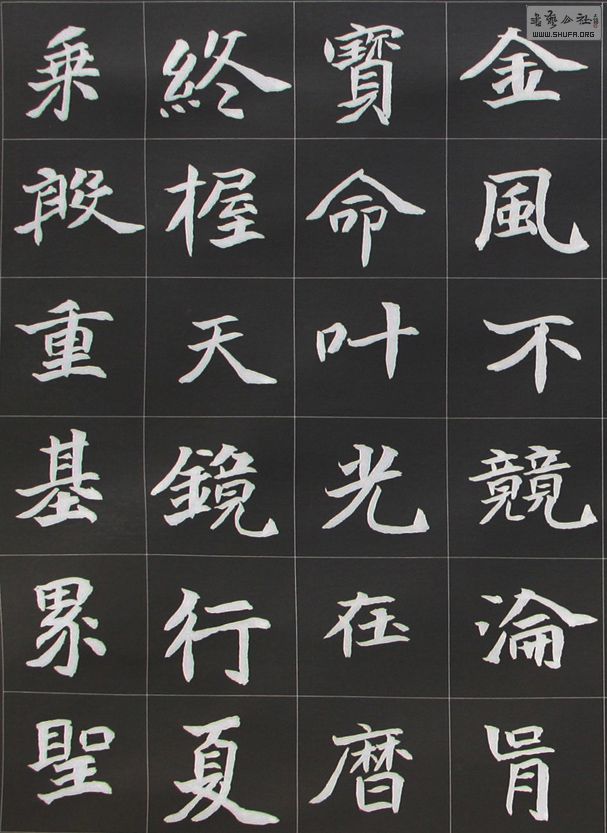 金風不競淪胥
寶命叶光在曆
終握天鏡行夏
乗殷重基累聖
書藝公社
WWW.SHUFA.ORG